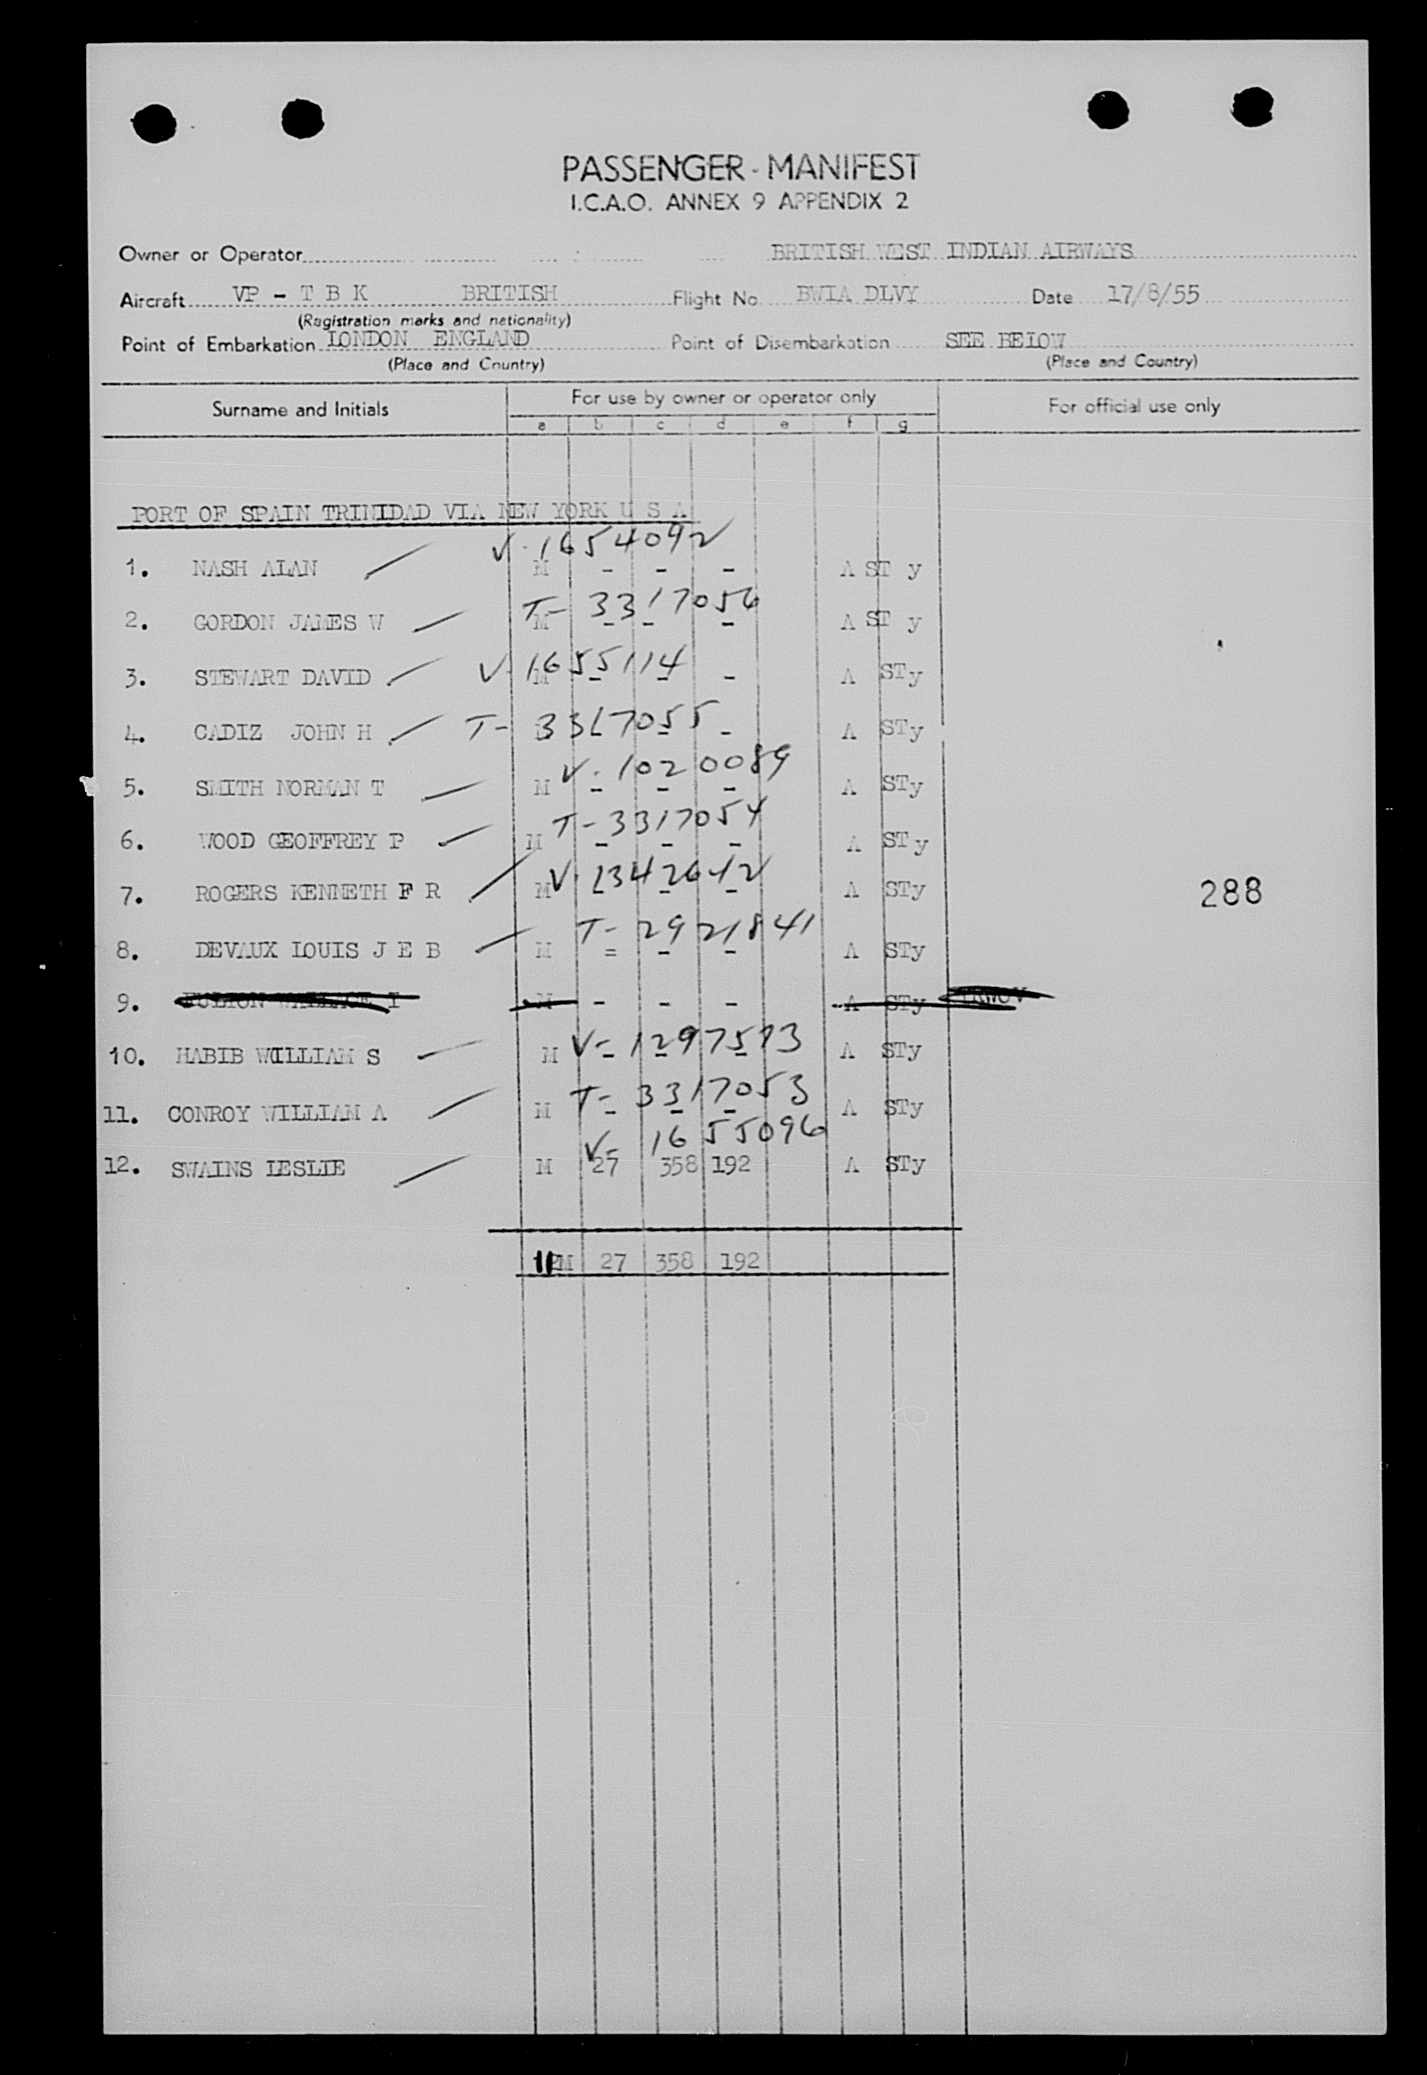 PASSENGER - MANIFEST
I.C.A.O. ANNEX 9 APPENDIX 2
Owner or Operator BRITISH WEST INDIAN AIRWAYS
Aircraft VP - T B K BRITISH Flight No BWIA DLVY Date 17/8/55
(Registration marks and nationality)
Point of Embarkation LONDON ENGLAND Point of Disembarkation SEE BELOW
(Place and Country) (Place and Country)
Surname and Initials For use by owner or operator only For official use only
a b c d e f g
PORT OF SPAIN TRINIDAD VIA NEW YORK U S A
V-1654092
1. NASH ALAN M - - - A ST y
T-3317056
2. GORDON JAMES W M - - - A ST y
V-1655114
3. STEWART DAVID M - - - A STy
T-3317055
4. CADIZ JOHN H - - A STy
V-1020089
5. SMITH NORMAN T M - - - A STy
T-3317054
6. WOOD GEOFFREY P M - - - A ST y
7. ROGERS KENNETH F R M - - A STy
288
T-2921841
8. DEVAUX LOUIS J E B M = - - A STy
9. M - - - A STy
V-1297573
10. HABIB WILLIAM S M - - - A STy
T-3317053
11. CONROY WILLIAM A M - - - A STy
V-1655096
12. SWAINS LESLIE M 27 358 192 A STy
11M 27 358 192